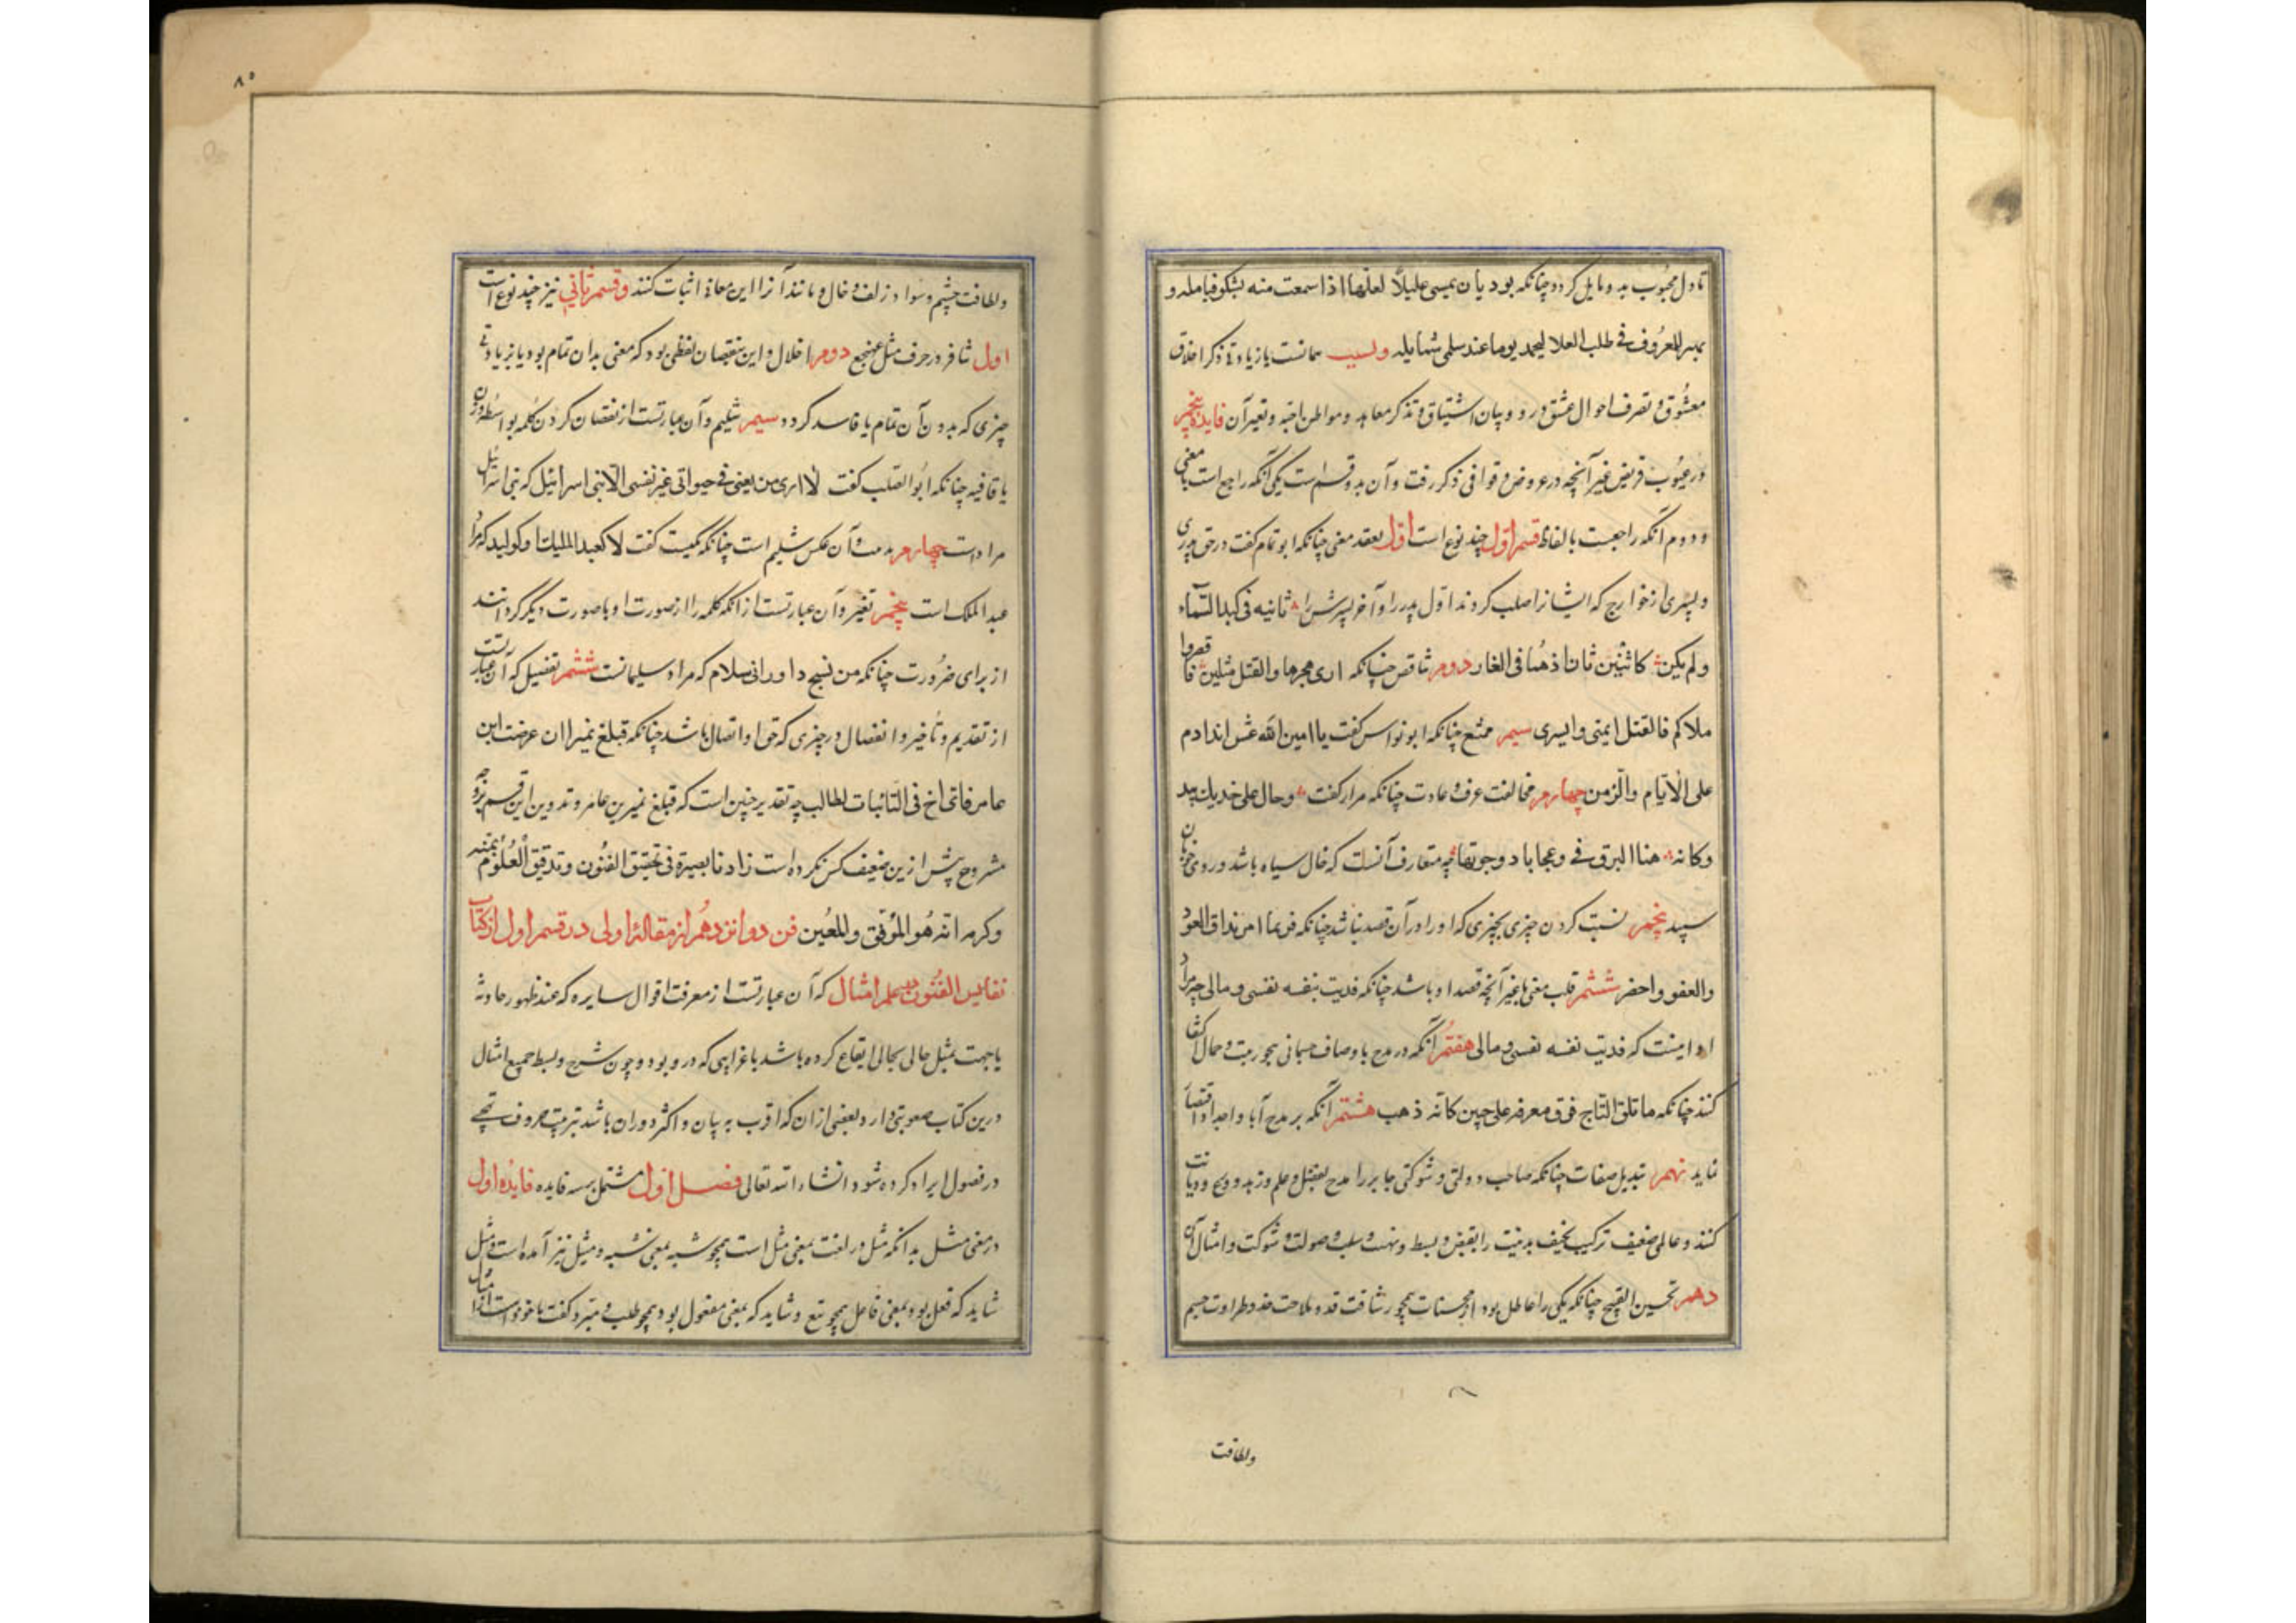 تا دل محبوب بدو مایل گردد چنانکه بود یان یمسی علیلاً لعلها اذا سمعت منه بشکو فیا مله و
للمعروف فی طلب العلا لیحمد یوما عند سلمی شمایله و نسیب همانست یا زیادتی ذکر اخلاق
معشوق و تصرف احوال عشق در وی و بیان اشتیاق و تذکر معاهد و مواطن احبه و تغیر آن فایده پنجم
در عیوب قریض غیر آنچه در عروض و قوافی ذکر رفت و آن بدو قسم است یکی آنکه راجع است با معنی
و دوم آنکه راجعست بالفاظ قسم اول چند نوع است اول تعقد معنی چنانکه ابو تمام گفت در حق پدری
و پسری از خوارج که ایشانرا صلب کردند اول پدر را و آخر پسرش را ثانیه فی کبد السماء
ولم یکن کاثنین ثان اذ هما فی الغار دوم تناقض چنانکه اری هجرها والقتل مثلین فاقصروا
ملامکم فالقتل ایمنی و ایسری سیم ممتنع چنانکه ابو نواس گفت یا امین الله عش ابدا دم
علی الایام والزمن چهارم مخالفت عرف و عادت چنانکه مرار گفت و حال علی خدیک یبد
وکانه سنا البرق فی دعجا باد دجونها چه متعارف آنست که خال سیاه باشد در روی خوبان
سپید پنجم نسبت کردن چیزی بچیزی که او را در آن قصد نباشد چنانکه
والعفو واحضر ششم قلب معنی بغیر آنچه قصد او باشد چنانکه فدیت بنفسه نفسی و مالی چه مراد
او اینست که فدیت نفسه نفسی و مالی هفتم آنکه در مدح باوصاف جسمانی همچو زینت و جمال اکتفا
کنند چنانکه ما تلق التاج فوق مفرقه علی جبین کانه ذهب هشتم آنکه بر مدح آبا و اجداد اقتصار
نماید نهم تبدیل صفات چنانکه صاحب دولتی و شوکتی جابر را مدح بفضل و علم و زهد و ورع و دیانت
کنند و عالمی ضعیف ترکیب نحیف بنیت را بقبض و بسط و نهب و سلب و صولت و شوکت و امثال آن
دهم تحسین القبیح چنانکه یکی را عاطل بود از محسنات همچو رشاقت قد و ملاحت خد و طراوت جسم
ولطافت
۸۰
ولطافت چشم و سواد زلف و خال و مانند آنرا این معانی اثبات کنند و قسم ثانی نیز چند نوع است
اول تنافر در حرف مثل عهخع دوم اخلال و این نقصان لفظی بود که معنی بدان تمام بود یا زیادتی
چیزی که بدون آن تمام یا فاسد گردد سیم تثلیم و آن عبارتست از نقصان کردن کلمه بواسطه وزن
یا قافیه چنانکه ابو الصلب گفت لا اری من یعینی فی حیواتی غیر نفسی الا بنی اسرائیل که بنی اسرائیل
مرادست چهارم و آن عکس تثلیم است چنانکه کمیت گفت لا کعبد الملیک او کولید که مراد
عبد الملک است پنجم تغیر و آن عبارتست از آنکه کلمه را از صورت او با صورت دیگر گردانند
از برای ضرورت چنانکه من نسج داود ابی سلام که مراد سلیمانست ششم تفصیل که آن عبارتست
از تقدیم و تأخیر و انفصال در چیزی که حق او اتصال باشد چنانکه فبلغ نمیرا ان عرضت ابن
عامر فای اخ فی النائبات لطالب چه تقدیر چنین است که فبلغ نمیر بن عامر و تدوین این قسم بر وجه
مشروح پیش ازین ضعیف کس نکرده است زادنا بصیرة فی تحقیق الفنون و تدقیق العلوم بمنه
وکرمه انه هو الموفق والمعین فن دوانزدهم از مقالۀ اولی در قسم اول از کتاب
نفایس الفنون علم امثال که آن عبارتست از معرفت اقوال سایره که عند ظهور حادثه
یا جهت تمثیل حالی بحالی ایقاع کرده باشد با غرابتی که درو بود و چون شرح و بسط جمیع امثال
درین کتاب صعوبتی دارد بعضی از آن که اقرب به بیان و اکثر دوران باشد بترتیب حروف تهجی
در فصول ایراد کرده شود انشاء الله تعالی فصل اول مشتمل بر سه فایده فایدۀ اول
در معنی مثل بدانکه مثل در لغت بمعنی مثل است همچو شبه بمعنی شبه و مثیل نیز آمده است و مثل
شاید که فعل بود بمعنی فاعل همچو تبع و شاید که بمعنی مفعول بود همچو طلب و مبرد گفت ماخوذ است از مثال